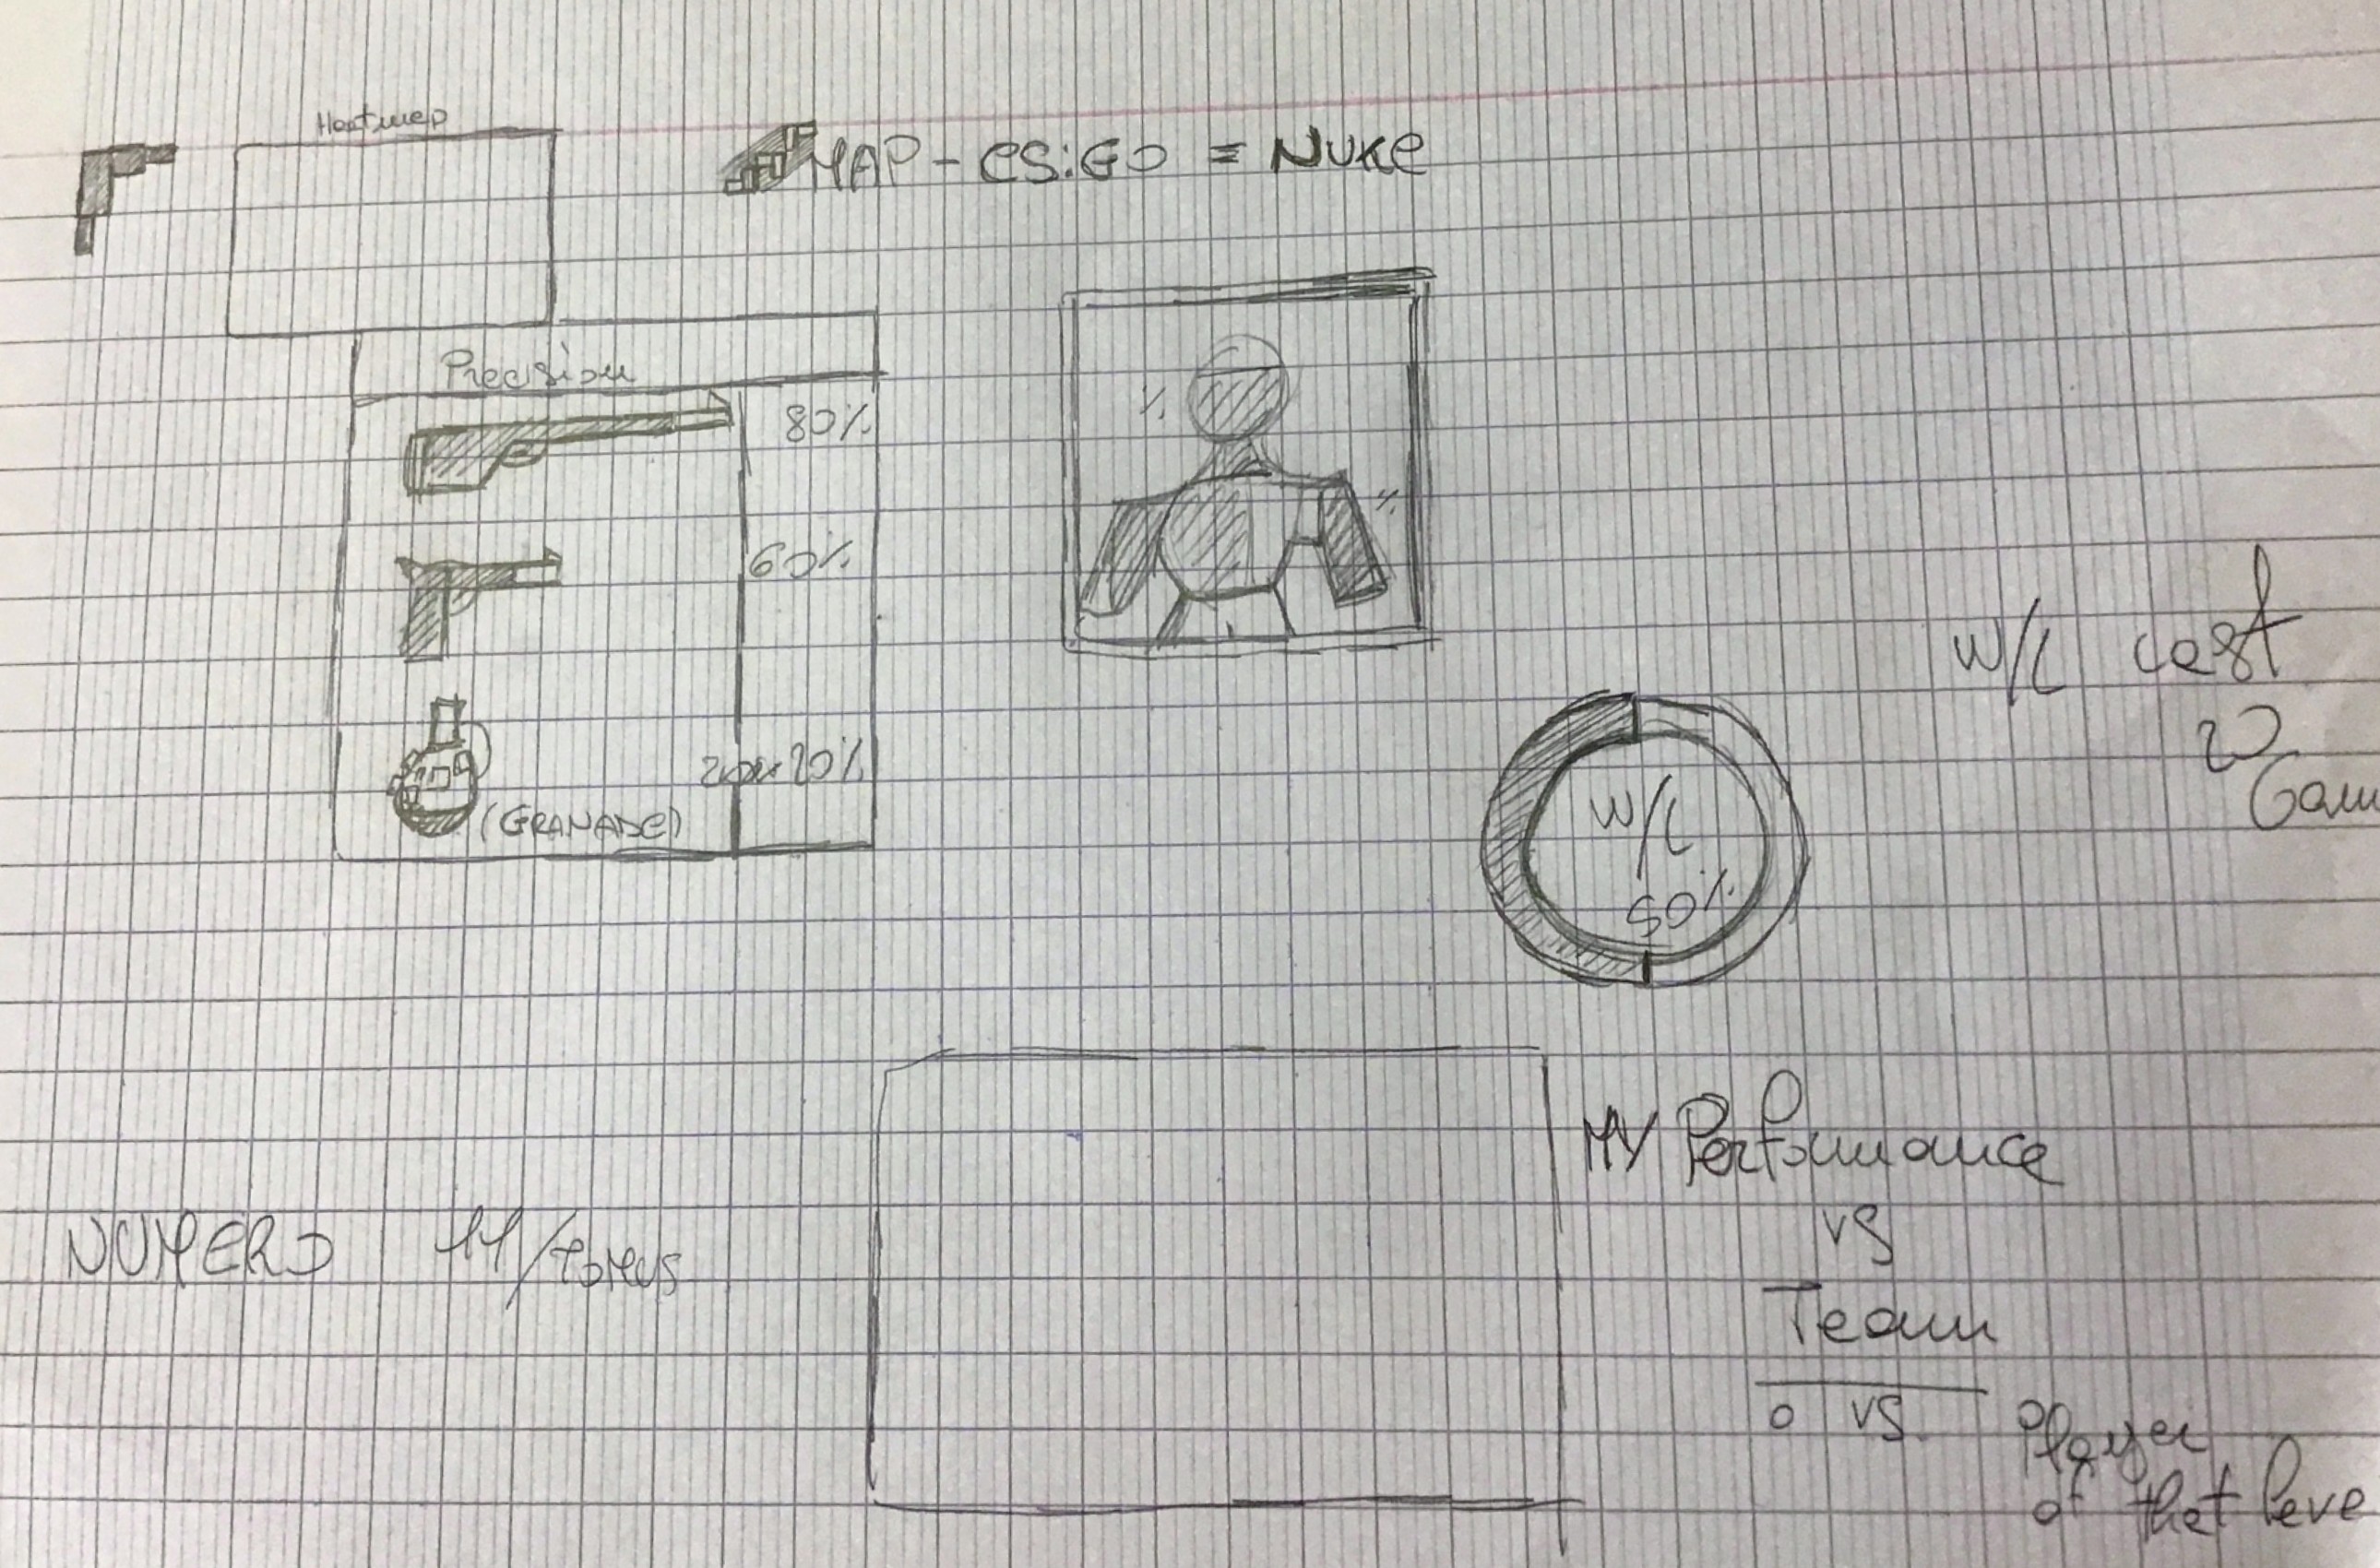 Heatmap
MAP - CS:GO = NUKE
Precision
80%
%
%
60%
20%
(GRANADE)
W/L last
20
Gam
W/L
50%
MY Performance
vs
Team
o vs Player
of that leve
NUMERO 11/